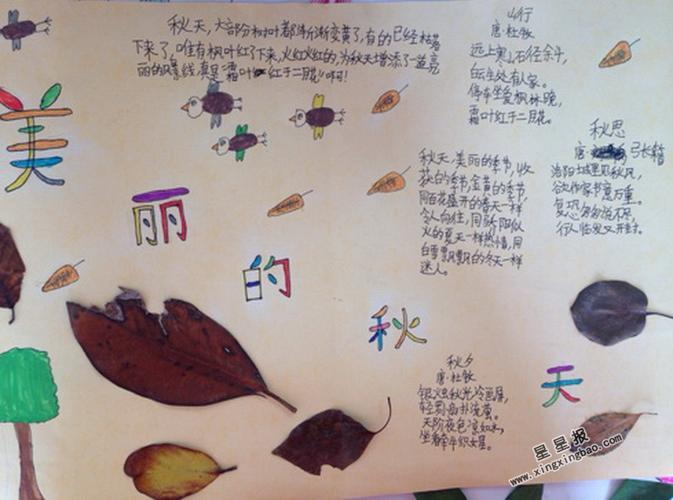 秋天，大部分树叶都渐渐变黄了，有的已经枯落
下来了，唯有枫叶红了下来，火红火红的，为秋天增添了一道亮
丽的风景线，真是"霜叶红于二月花"啊！
山行
唐·杜牧
远上寒山石径余斗，
白云生处有人家。
停车坐爱枫林晚，
霜叶红于二月花。
秋思
唐 张籍
洛阳城里见秋风，
欲作家书意万重。
复恐匆匆说不尽，
行人临发又开封。
秋天，美丽的季节，收
获的季节，金黄的季节，
同百花盛开的春天一样
令人向往，同骄阳似
火的夏天一样热情，同
白雪飘飘的冬天一样
迷人。
美
丽
的
秋
天
秋夕
唐·杜牧
银烛秋光冷画屏，
轻罗小扇扑流萤。
天阶夜色凉如水，
坐看牵牛织女星。
星星报
www.xingxingbao.com